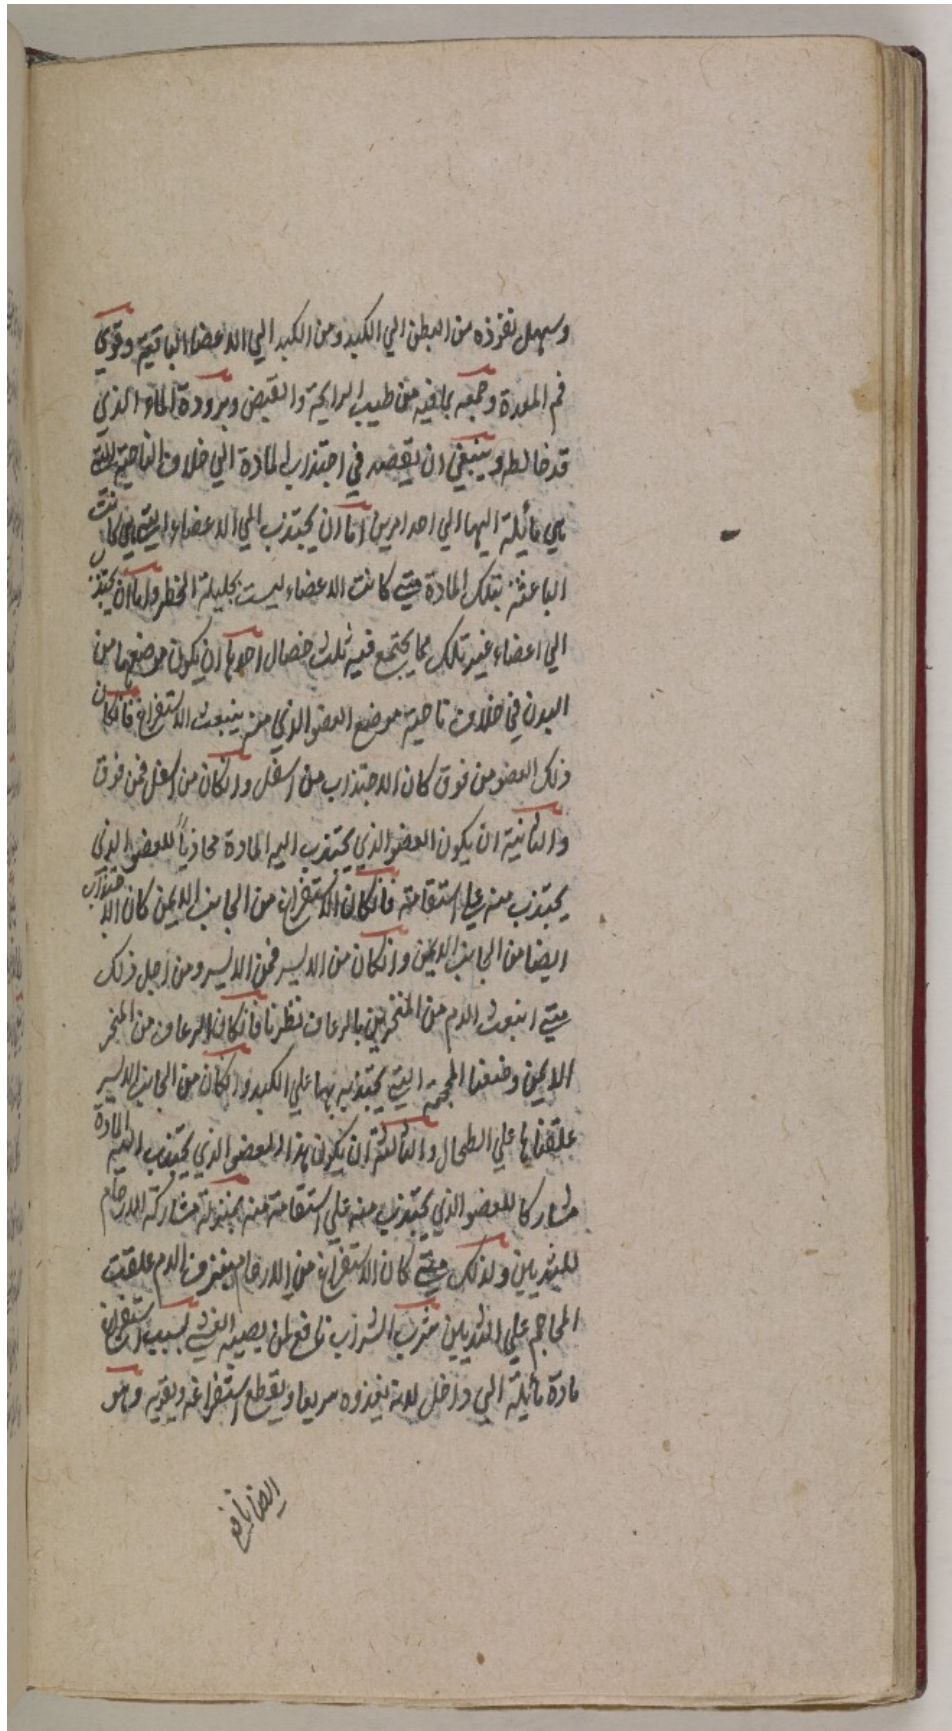 وسهل نفوذه من البطن الي الكبد ومن الكبد الي الاعضاء الباقية وقوي
فم المعدة وجمعه بما فيه من طيب الرايحة والقبض وبرودة الماء الذي
قد خالطه وينبغي ان يقصد في اجتذاب المادة الي خلاف الناحية التي
هي مائلة اليها الي احد امرين اما ان يجتذب الي الاعضاء التي هي كانت
الباعثة بتلك المادة متي كانت الاعضاء ليست بجليلة الخطر واما ان يجتذب
الي اعضاء غير تلك مما يجتمع فيه ثلث خصال احداها ان يكون موضعها من
البدن في خلاف ناحية موضع العضو الذي منه ينبعث الاستفراغ فانكان
ذلك العضو من فوق كان الاجتذاب من اسفل وانكان من اسفل فمن فوق
والثانية ان يكون العضو الذي يجتذب اليه المادة محاذياً للعضو الذي
يجتذب منه علي استقامته فانكان الاستفراغ من الجانب الايمن كان الاجتذاب
ايضا من الجانب الايمن وانكان من الايسر فمن الايسر ومن اجل ذلك
متي انبعث الدم من المنخرين بالرعاف نظرنا فانكان الرعاف من المنخر
الايمن وضعنا المحجمة التي يجتذبه بها علي الكبد وانكان من الجانب الايسر
علقناها علي الطحال والثالثة ان يكون هذا العضو الذي يجتذب اليه المادة
مشاركا للعضو الذي يجتذب منه علي استقامة منه بمنزلة مشاركة الارحام
للثديين ولذلك متي كان الاستفراغ من الارحام بنزف الدم علقت
المحاجم علي الثديين شرب الشراب نافع لمن يصيبه الغشي بسبب استفراغ
مادة مائلة الي داخل لانه يغذوه سريعا ويقطع استفراغه ويقويه وهو
ايضا نافع